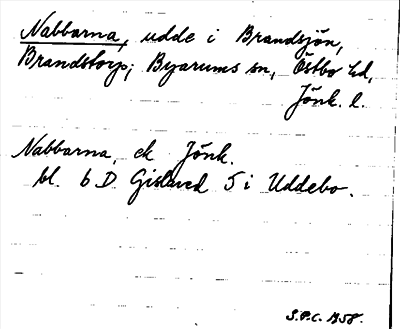 Nabbarna, udde i Brandsjön,
Brandstorp; Byarums sn, Östbo hd,
Jönk. l.
Nabbarna, ek Jönk.
bl. 6 D Gislaved 5 i Uddebo.
S.P.C. 1958.